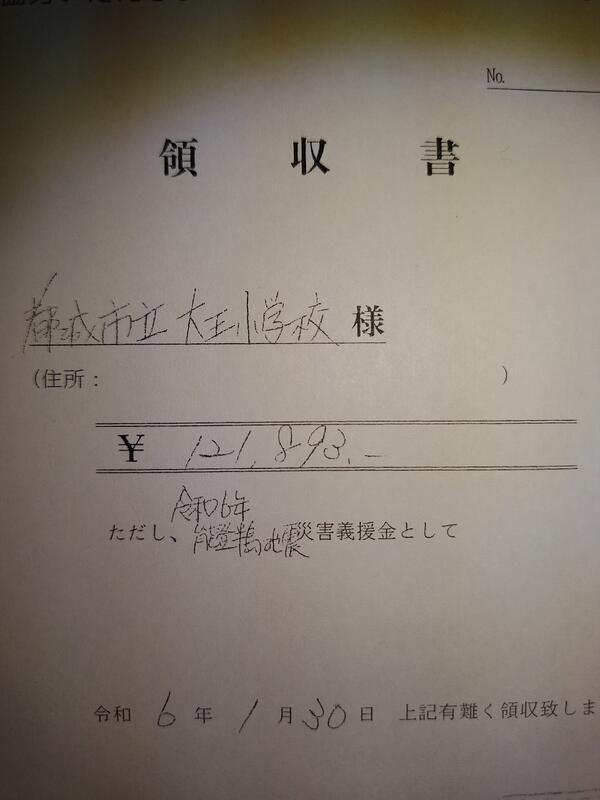 No.
領収書
都城市立大王小学校 様
(住所: )
¥ 121,893.-
令和6年
ただし、能登半島地震災害義援金として
令和 6 年 1 月 30 日 上記有難く領収致しま